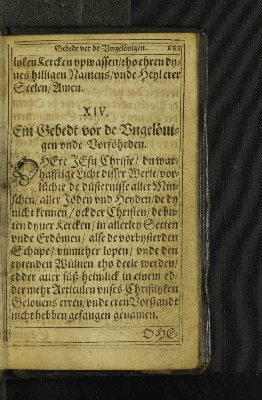 Gebedt vor de Vngelöuigen. 685
lyken Kercken vpwassen / tho ehren dy-
nes hilligen Namens / vnde Heyl erer
Seelen / Amen.
XIV.
Ein Gebedt vor de Vngelöui-
gen vnde Vorföhrden.
HEre JEsu Christe / du war-
hafftige Licht disser Werlt / vor-
lüchte de düsternisse aller Min-
schen / aller Jöden vnd Heyden / de dy
nicht kennen / ock der Christen / de bu-
ten dyner Kercken / in allerley Secten
vnde Erdömen / alse de vorbysterden
Schape / vmmeher lopen / vnde den
rytenden Wüluen tho deele werden /
edder aner süß heimlick in einem ed-
der mehr Articulen vnses Christlyken
Gelouens erren / vnde eren Vorstandt
nicht hebben gefangen genamen.
O HE-